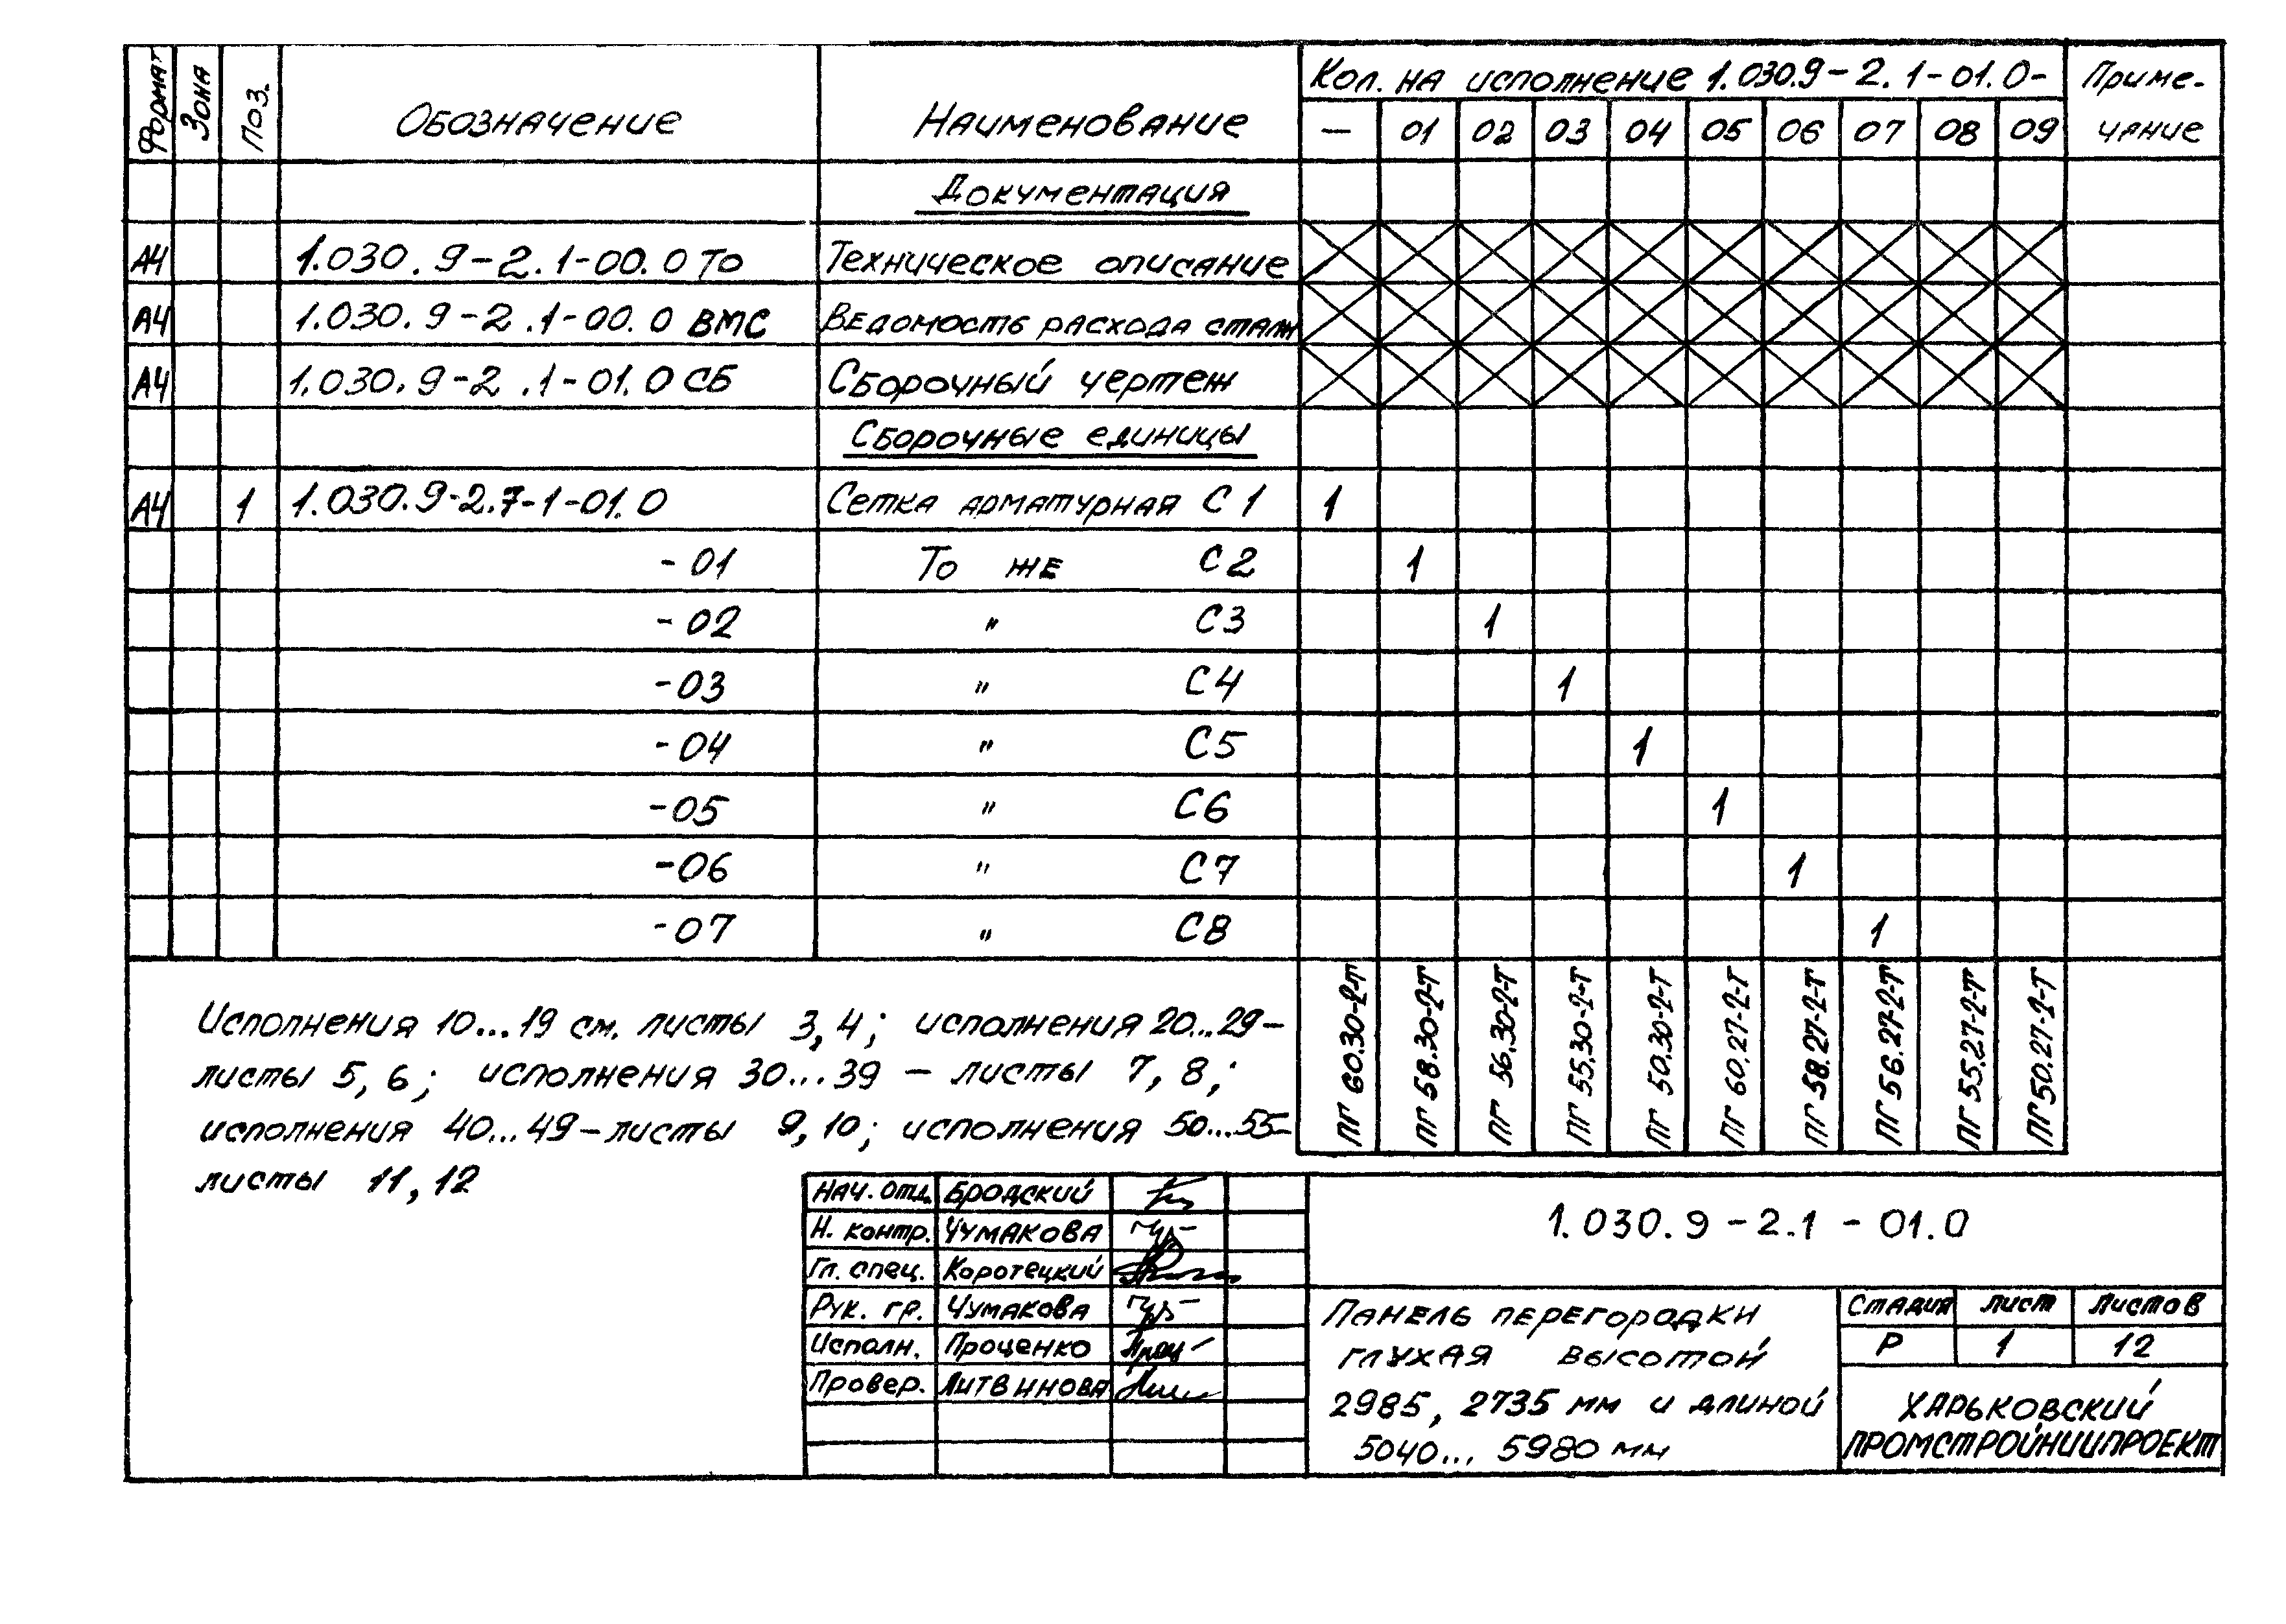 Формат Зона Поз. Обозначение Наименование Кол. на исполнение 1.030.9-2.1-01.0- Приме-
чание
— 01 02 03 04 05 06 07 08 09
Документация
А4 1.030.9-2.1-00.0 ТО Техническое описание
А4 1.030.9-2.1-00.0 ВМС Ведомость расхода стали
А4 1.030.9-2.1-01.0 СБ Сборочный чертеж
Сборочные единицы
А4 1 1.030.9-2.7-1-01.0 Сетка арматурная С1 1
-01 То же С2 1
-02 " С3 1
-03 " С4 1
-04 " С5 1
-05 " С6 1
-06 " С7 1
-07 " С8 1
ПГ 60.30-2-Т ПГ 58.30-2-Т ПГ 56.30-2-Т ПГ 55.30-2-Т ПГ 50.30-2-Т ПГ 60.27-2-Т ПГ 58.27-2-Т ПГ 56.27-2-Т ПГ 55.27-2-Т ПГ 50.27-2-Т
Исполнения 10...19 см. листы 3, 4; исполнения 20...29-
листы 5, 6; исполнения 30...39 - листы 7, 8;
исполнения 40...49-листы 9, 10; исполнения 50...55-
листы 11, 12
Нач. отд. Бродский
Н. контр. Чумакова
Гл. спец. Коротецкий
Рук. гр. Чумакова
Исполн. Проценко
Провер. Литвинова
1.030.9-2.1-01.0
Панель перегородки
глухая высотой
2985, 2735 мм и длиной
5040... 5980 мм
Стадия Лист Листов
Р 1 12
Харьковский
ПРОМСТРОЙНИИПРОЕКТ